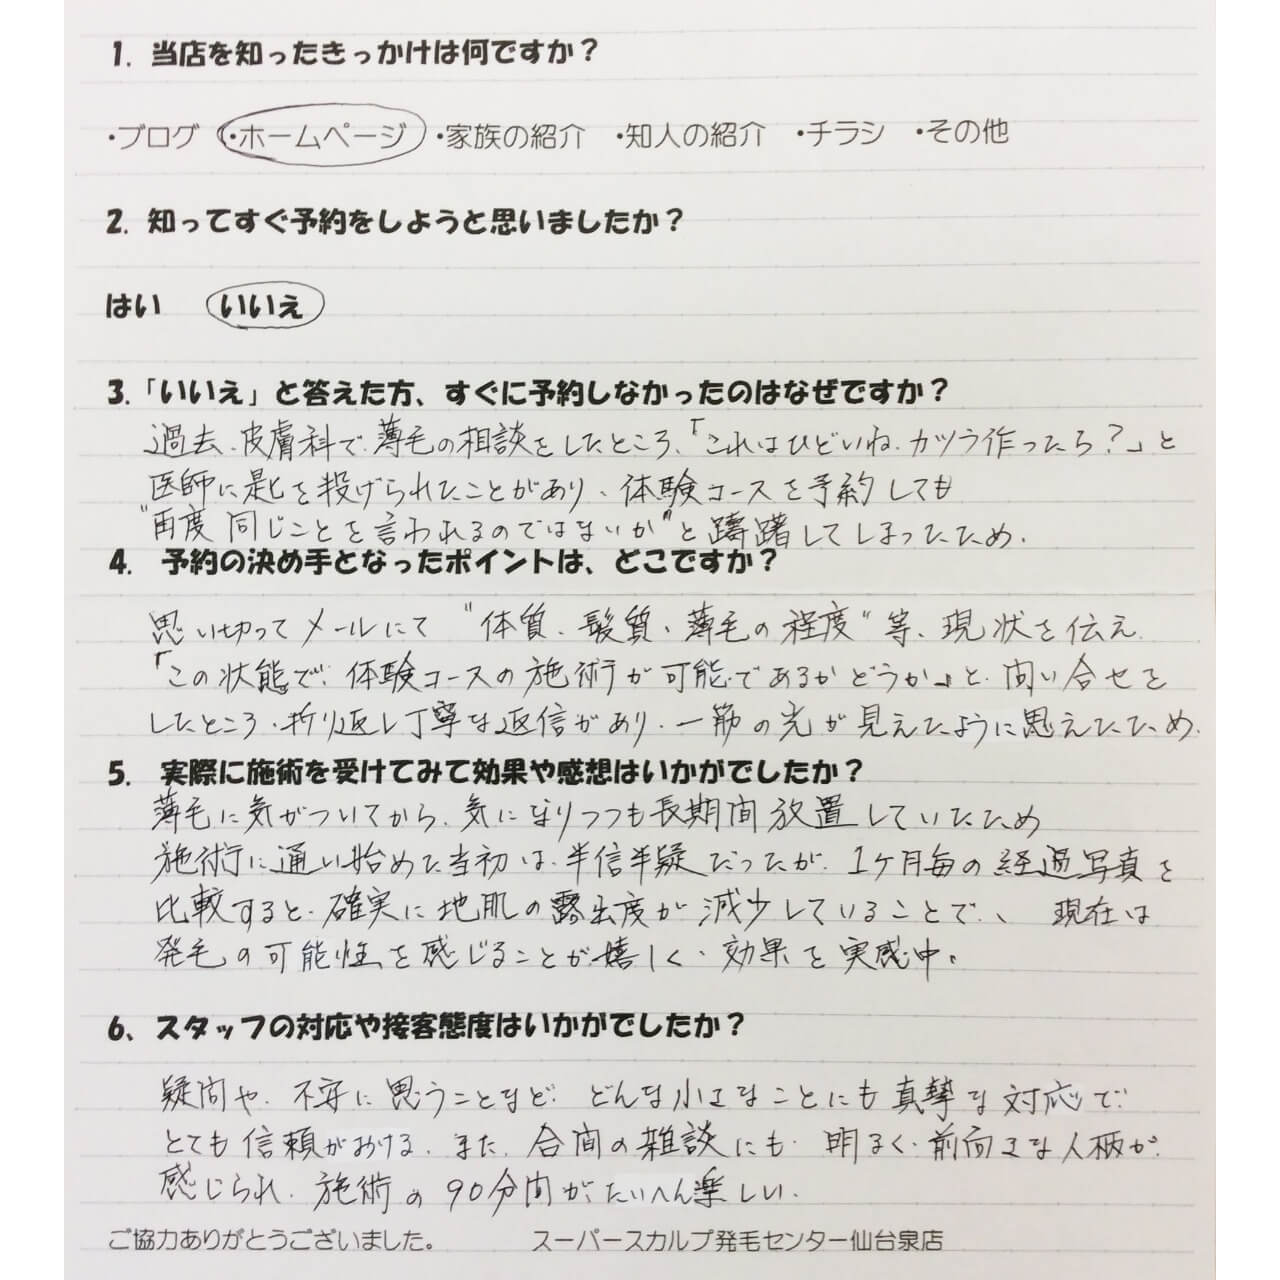 1. 当店を知ったきっかけは何ですか？
・ブログ ・ホームページ ・家族の紹介 ・知人の紹介 ・チラシ ・その他
2. 知ってすぐ予約をしようと思いましたか？
はい いいえ
3.「いいえ」と答えた方、すぐに予約しなかったのはなぜですか？
過去、皮膚科で、薄毛の相談をしたところ、「これはひどいね、カツラ作ったら？」と
医師に匙を投げられたことがあり、体験コースを予約しても
"再度 同じことを言われるのではないか"と躊躇してしまったため.
4. 予約の決め手となったポイントは、どこですか？
思い切ってメールにて "体質、髪質、薄毛の程度"等、現状を伝え
「この状態で、体験コースの施術が可能であるかどうか」と、問い合せを
したところ、折り返し丁寧な返信があり、一筋の光が見えたように思えたため.
5. 実際に施術を受けてみて効果や感想はいかがでしたか？
薄毛に気がついてから、気になりつつも長期間放置していたため
施術に通い始めた当初は、半信半疑だったが、1ヶ月毎の経過写真を
比較すると、確実に地肌の露出度が減少していることで、、現在は
発毛の可能性を感じることが嬉しく、効果を実感中。
6、スタッフの対応や接客態度はいかがでしたか？
疑問や、不安に思うことなど、どんな小さなことにも真摯な対応で
とても信頼がおける. また、合間の雑談にも、明るく、前向きな人柄が
感じられ、施術の90分間がたいへん楽しい.
ご協力ありがとうございました。 スーパースカルプ発毛センター仙台泉店